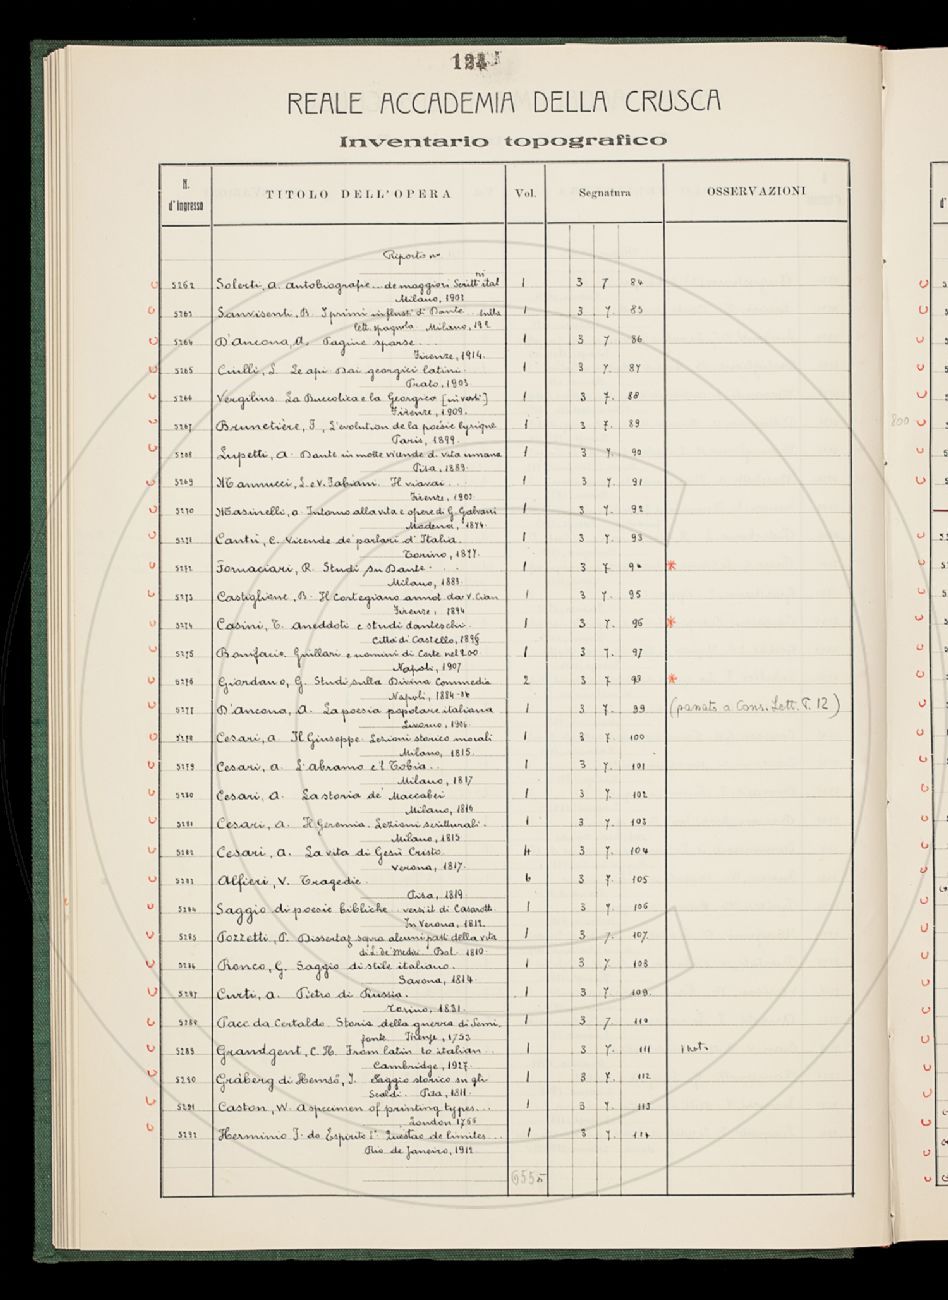 124
REALE ACCADEMIA DELLA CRUSCA
Inventario topografico
N. d'Ingresso TITOLO DELL'OPERA Vol. Segnatura OSSERVAZIONI
Riporto n°
5262 Solerti, A. Autobiografie... de maggiori Scritt.ni ital 1 3 7 84
Milano, 1903
5263 Sanvisenti, B. I primi influssi di Dante.. sulla 1 3 7. 85
lett. spagnola Milano, 192
5264 D'Ancona, A. Pagine sparse... 1 3 7 86
Firenze, 1914.
5265 Ciulli, L. Le api dai georgici latini. 1 3 7. 87
Prato, 1903
5266 Vergilius. La Buccolica e la Georgica [in versi] 1 3 7. 88
Firenze, 1909.
5267 Brunetière, F., L'evolution de la poésie lyrique 1 3 7. 89
Paris, 1899.
5268 Lupetti, A. Dante in molte vicende d. vita umana 1 3 7. 90
Pisa, 1889.
5269 Mannucci, L. e V. Fabiani. Il viavai... 1 3 7. 91
Firenze, 1903
5270 Masinelli, A. Intorno alla vita e opere di G. Galvani 1 3 7. 92
Modena, 1874.
5271 Cantù, C. Vicende de' parlari d'Italia. 1 3 7. 93
Torino, 1877.
5272 Fornaciari, R. Studi su Dante. 1 3 7 94 *
Milano, 1883.
5273 Castiglione, B. Il Cortegiano annot. da V. Cian 1 3 7. 95
Firenze, 1894
5274 Casini, T. Aneddoti e studi danteschi. 1 3 7. 96 *
Città di Castello, 1895
5275 Bonifacio. Giullari e uomini di Corte nel 200 1 3 7. 97
Napoli, 1907
5276 Giordano, G. Studi sulla Divina Commedia 2 3 7 98 *
Napoli, 1884-86
5277 D'Ancona, A. La poesia popolare italiana 1 3 7. 99 (passato a Cons. Lett. T. 12)
Livorno, 1906.
5278 Cesari, A. Il Giuseppe. Lezioni storico morali 1 3 7 100
Milano, 1815.
5279 Cesari, A. L'Abramo e 'l Tobia.. 1 3 7. 101
Milano, 1817
5280 Cesari, A. La storia de' Maccabei 1 3 7. 102
Milano, 1816
5281 Cesari, A. Il Geremia. Lezioni scritturali. 1 3 7. 103
Milano, 1815
5282 Cesari, A. La vita di Gesù Cristo. 4 3 7. 104
Verona, 1817.
5283 Alfieri, V. Tragedie. 6 3 7. 105
Pisa, 1819.
5284 Saggio di poesie bibliche.. vers. it. di Casarotti 1 3 7. 106
In Verona, 1812.
5285 Pozzetti, P. Dissertaz. sopra alcuni passi della vita 1 3 7. 107.
di L. de' Medici Bol. 1810
5286 Ronco, G. Saggio di stile italiano. 1 3 7. 108
Savona, 1814.
5287 Curti, A. Pietro di Russia. 1 3 7. 109.
Torino, 1831.
5288 Pace da Certaldo. Storia della guerra di Semi. 1 3 7. 110
fonte. Firenze, 1753
5289 Grandgent, C. H. From latin to italian.. 1 3 7. 111
Cambridge, 1927.
5290 Gràberg di Hemsö, J. Saggio storico su gli 1 3 7. 112
Scaldi. Pisa, 1811.
5291 Caslon, W. A specimen of printing types... 1 3 7. 113
London 1766
5292 Herminio J. do Espirito S° Questao de limites... 1 3 7. 114
Rio de Janeiro, 1912.
800